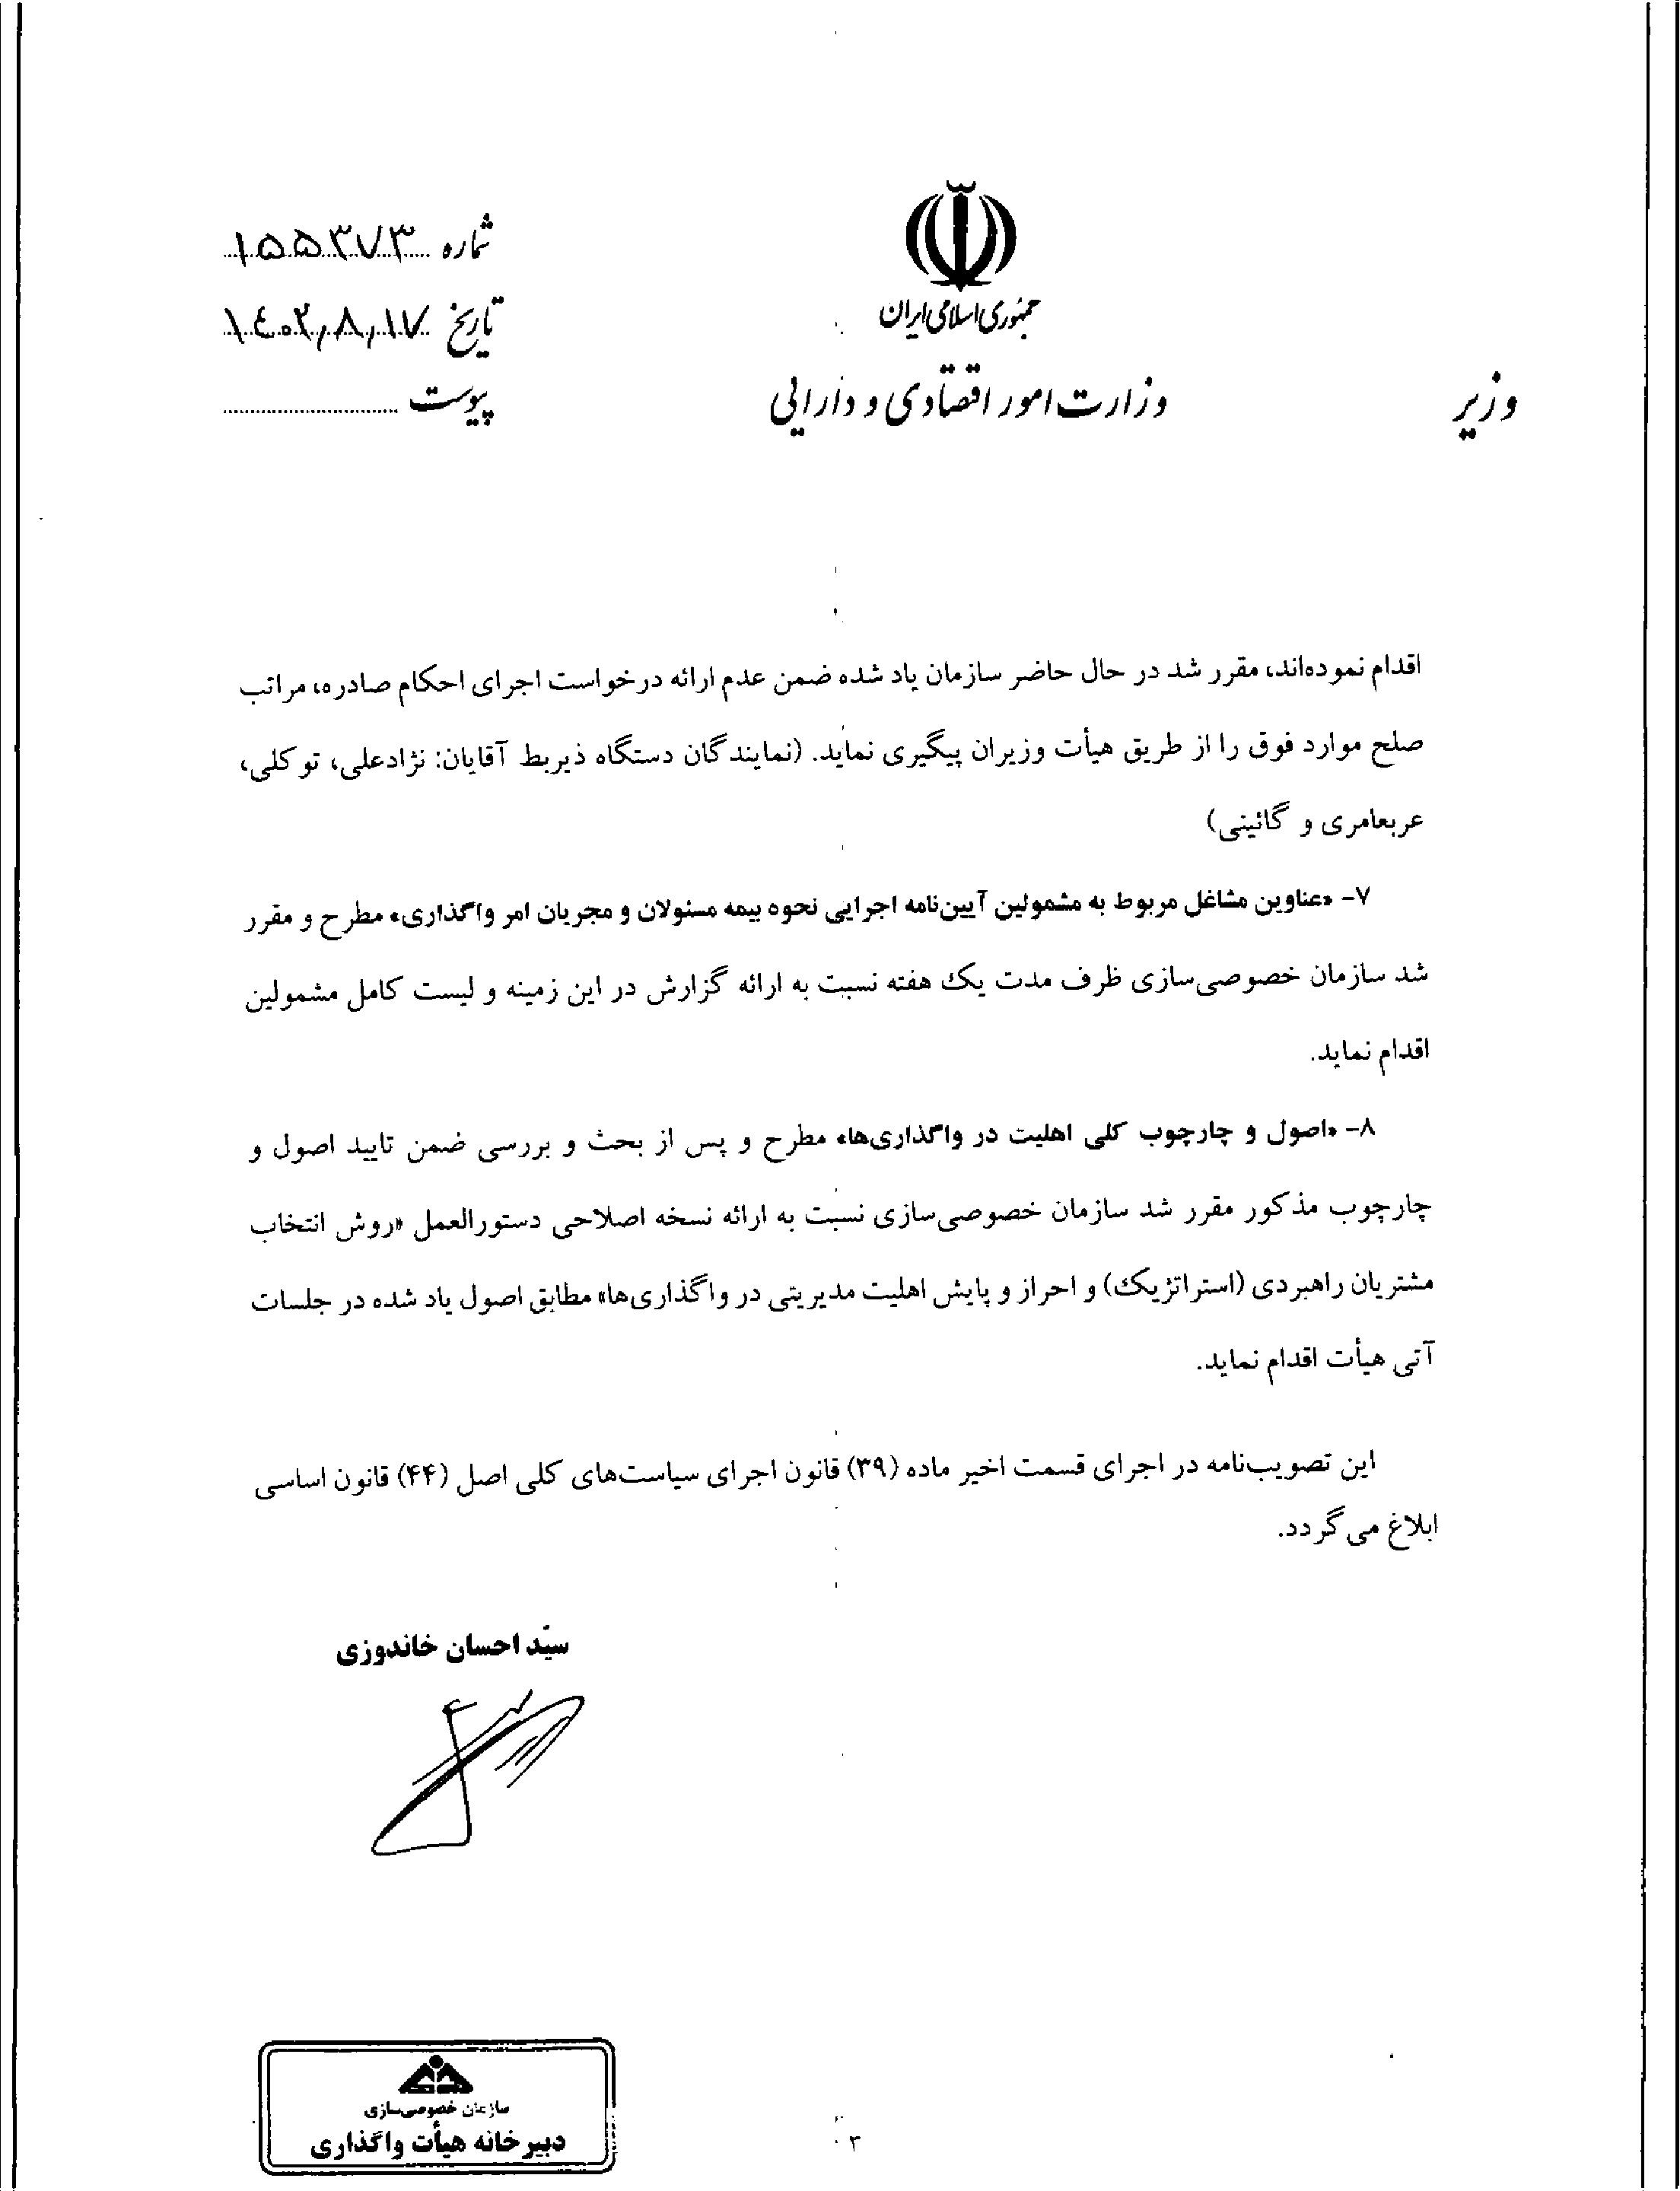 جمهوری اسلامی ایران
وزارت امور اقتصادی و دارایی
وزیر
شماره ۱۵۵۳۷۳
تاریخ ۱۴۰۲,۸,۱۷
پیوست
اقدام نموده‌اند، مقرر شد در حال حاضر سازمان یاد شده ضمن عدم ارائه درخواست اجرای احکام صادره، مراتب
صلح موارد فوق را از طریق هیأت وزیران پیگیری نماید. (نمایندگان دستگاه ذیربط آقایان: نژادعلی، توکلی،
عربعامری و گائینی)
۷- «عناوین مشاغل مربوط به مشمولین آیین‌نامه اجرایی نحوه بیمه مسئولان و مجریان امر واگذاری» مطرح و مقرر
شد سازمان خصوصی‌سازی ظرف مدت یک هفته نسبت به ارائه گزارش در این زمینه و لیست کامل مشمولین
اقدام نماید.
۸- «اصول و چارچوب کلی اهلیت در واگذاری‌ها» مطرح و پس از بحث و بررسی ضمن تایید اصول و
چارچوب مذکور مقرر شد سازمان خصوصی‌سازی نسبت به ارائه نسخه اصلاحی دستورالعمل «روش انتخاب
مشتریان راهبردی (استراتژیک) و احراز و پایش اهلیت مدیریتی در واگذاری‌ها» مطابق اصول یاد شده در جلسات
آتی هیأت اقدام نماید.
این تصویب‌نامه در اجرای قسمت اخیر ماده (۳۹) قانون اجرای سیاست‌های کلی اصل (۴۴) قانون اساسی
ابلاغ می‌گردد.
سیّد احسان خاندوزی
سازمان خصوصی‌سازی
دبیرخانه هیأت واگذاری
۳